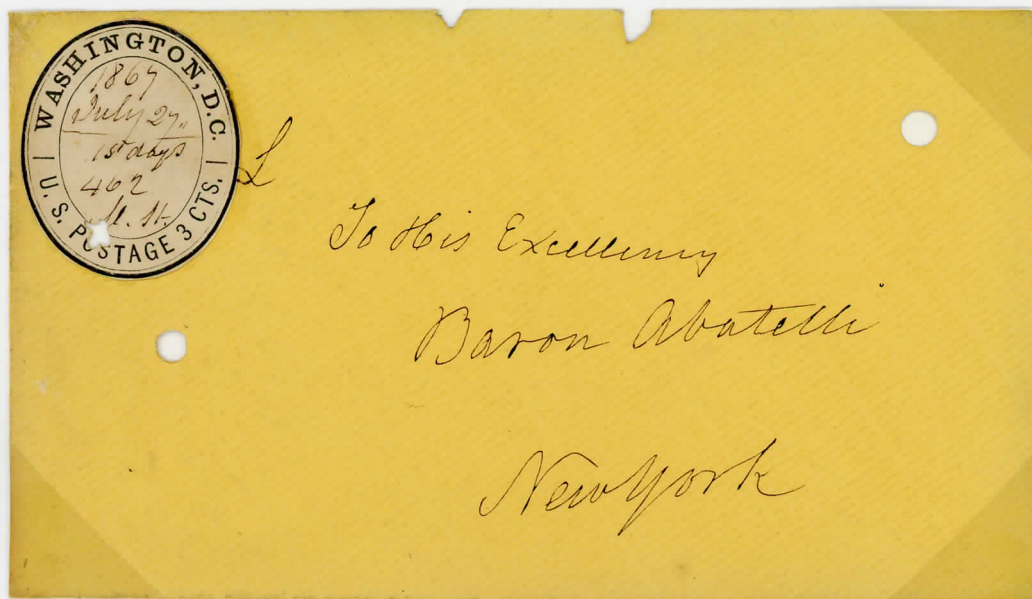 WASHINGTON, D.C.
1867
July 27,,
1st days
462
M. St.
U. S. POSTAGE 3 CTS.
L
To His Excellency
Baron Abatelli
New York